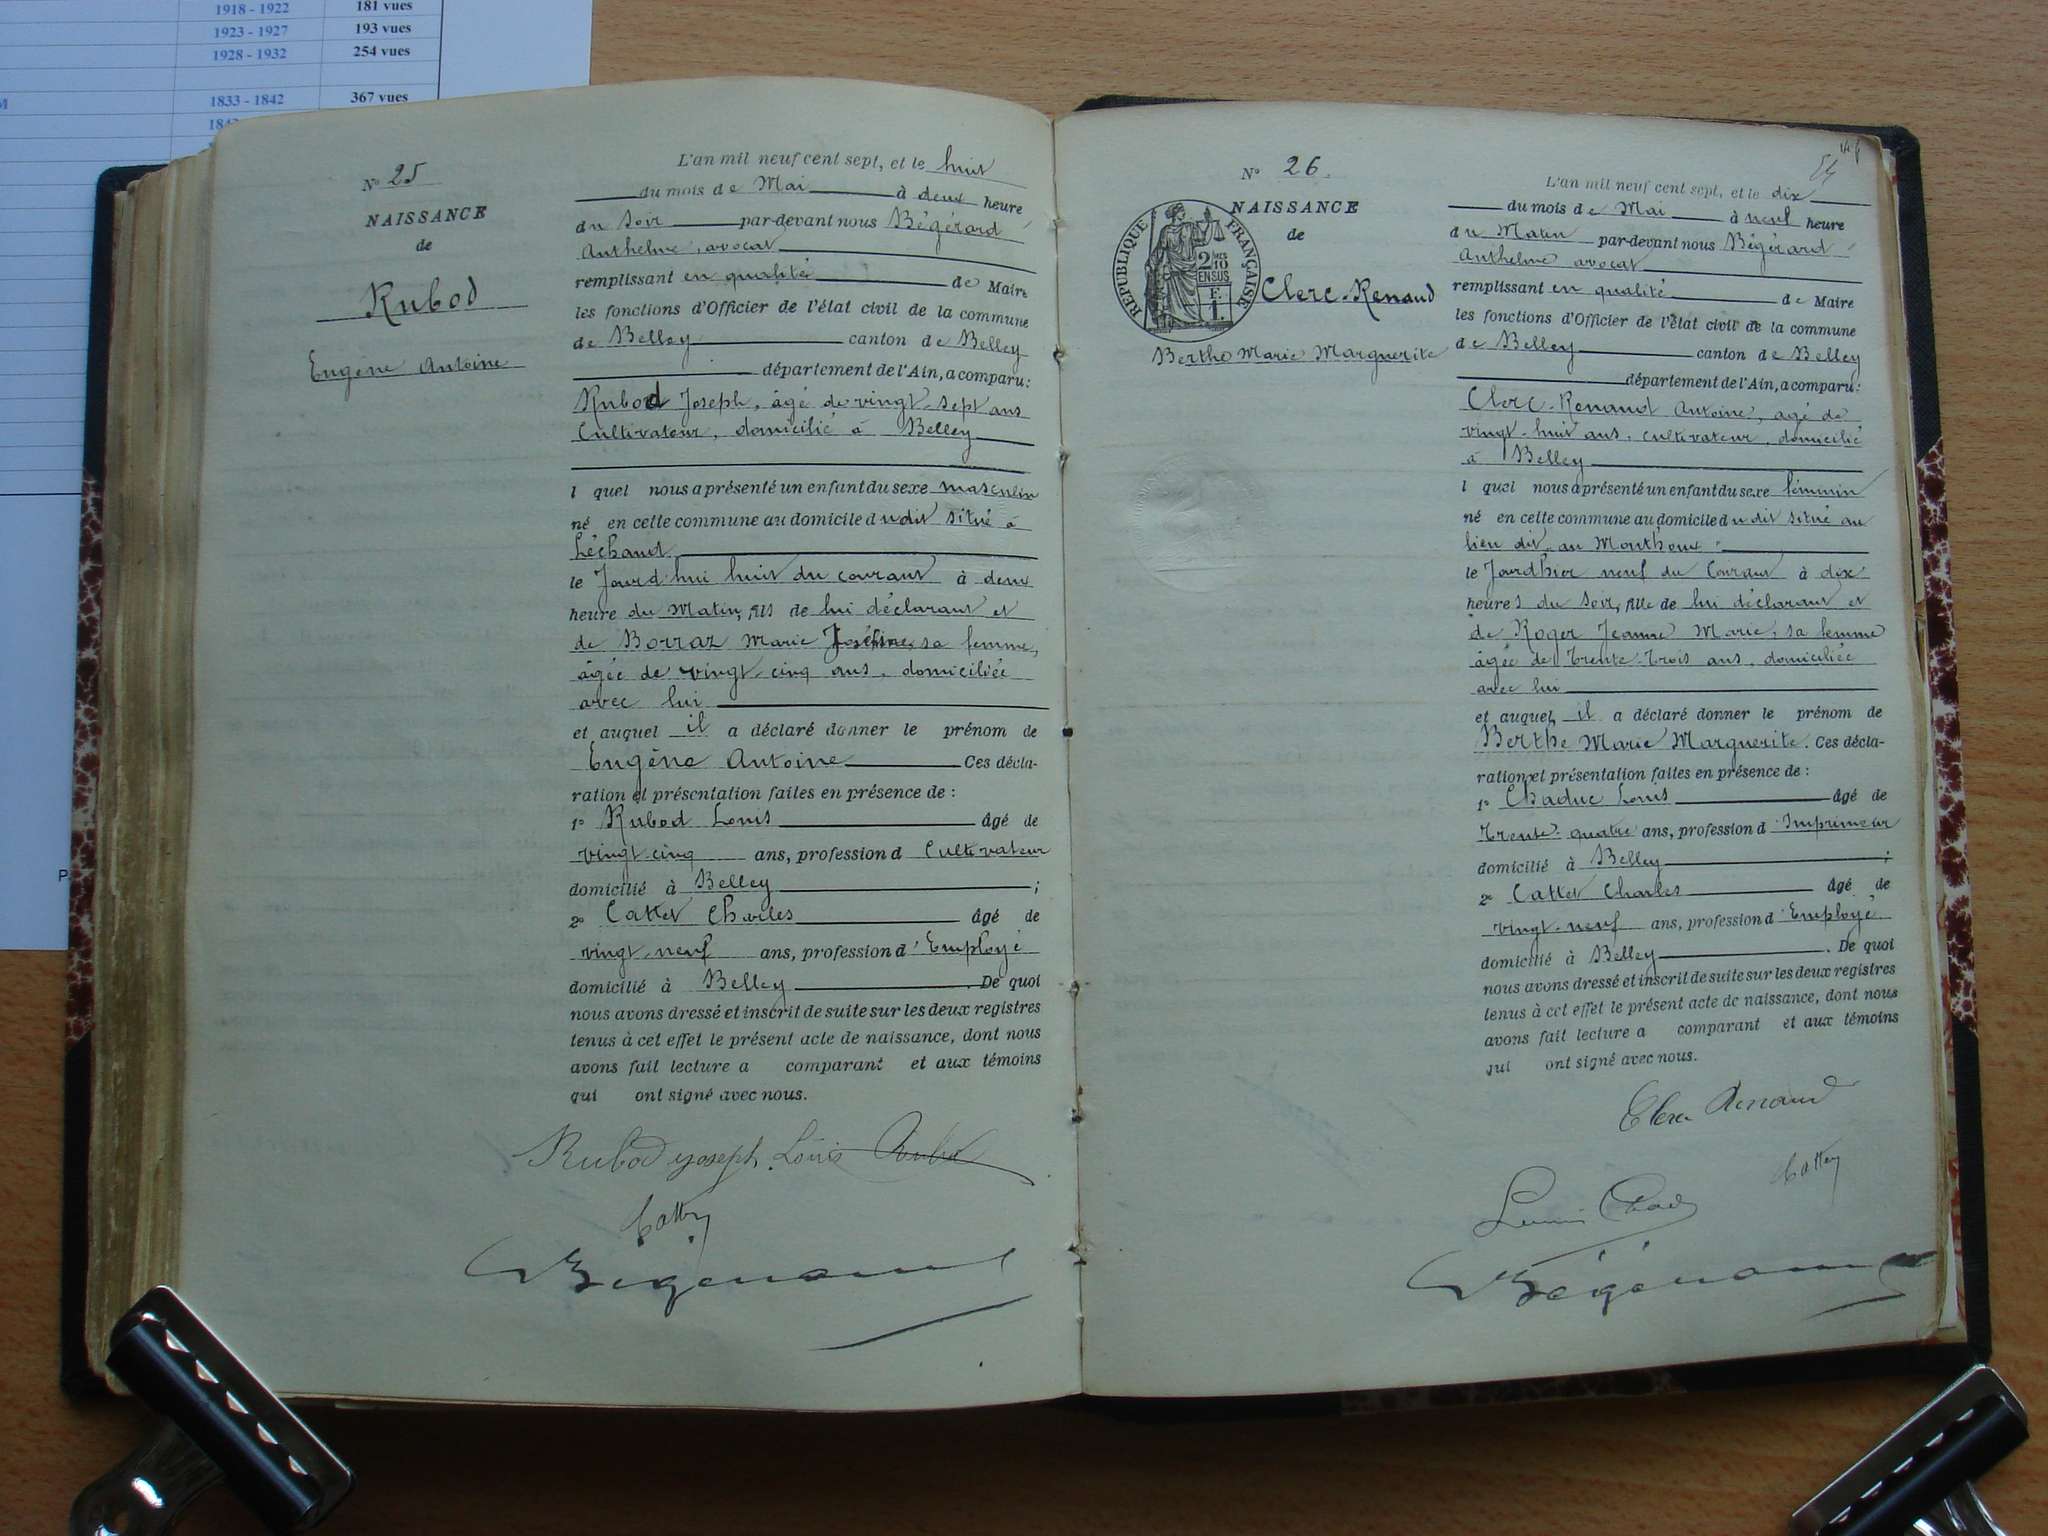 1918 - 1922 181 vues
1923 - 1927 193 vues
1928 - 1932 254 vues
M 1833 - 1842 367 vues
184
P
N° 25
NAISSANCE
de
Rubod
Eugène Antoine
L'an mil neuf cent sept, et le huit
du mois de Mai à deux heure
du Soir par-devant nous Bégérard
Anthelme, avocat
remplissant en qualité de Maire
les fonctions d'Officier de l'état civil de la commune
de Belley canton de Belley
département de l'Ain, a comparu:
Rubod Joseph, âgé de vingt-sept ans
Cultivateur, domicilié à Belley
l quel nous a présenté un enfant du sexe masculin
né en cette commune au domicile dudit situé à
Léchaud
le Jourd'hui huit du courant à deux
heure du Matin, fils de lui déclarant et
de Borraz Marie Joséfine, sa femme,
âgée de vingt-cinq ans, domiciliée
avec lui
et auquel il a déclaré donner le prénom de
Eugène Antoine Ces décla-
ration et présentation faites en présence de :
1° Rubod Louis âgé de
vingt-cinq ans, profession d Cultivateur
domicilié à Belley ;
2° Cattet Charles âgé de
vingt-neuf ans, profession d'Employé
domicilié à Belley . De quoi
nous avons dressé et inscrit de suite sur les deux registres
tenus à cet effet le présent acte de naissance, dont nous
avons fait lecture a comparant et aux témoins
qui ont signé avec nous.
Rubod Joseph Louis Rubod
Cattet
Bégérard
54
N° 26.
NAISSANCE
de
RÉPUBLIQUE FRANÇAISE
2/10
EN SUS
F.
1.
Clerc-Renaud
Berthe Marie Marguerite
L'an mil neuf cent sept, et le dix
du mois de Mai à neuf heure
du Matin par-devant nous Bégérard
Anthelme avocat
remplissant en qualité de Maire
les fonctions d'Officier de l'état civil de la commune
de Belley canton de Belley
département de l'Ain, a comparu:
Clerc-Renaud Antoine, âgé de
vingt-huit ans, cultivateur, domicilié
à Belley
l quel nous a présenté un enfant du sexe féminin
né en cette commune au domicile dudit situé au
lieu dit au Monthoux
le Jourdhier neuf du Courant à dix
heures du Soir, fille de lui déclarant et
de Roger Jeanne Marie, sa femme
âgée de trente-trois ans, domiciliée
avec lui
et auquel il a déclaré donner le prénom de
Berthe Marie Marguerite. Ces décla-
ration et présentation faites en présence de :
1° Chaduc Louis âgé de
trente-quatre ans, profession d'Imprimeur
domicilié à Belley ;
2° Cattet Charles âgé de
vingt-neuf ans, profession d'Employé
domicilié à Belley . De quoi
nous avons dressé et inscrit de suite sur les deux registres
tenus à cet effet le présent acte de naissance, dont nous
avons fait lecture a comparant et aux témoins
qui ont signé avec nous.
Clerc Renaud
Cattet
Louis Chaduc
Bégérard